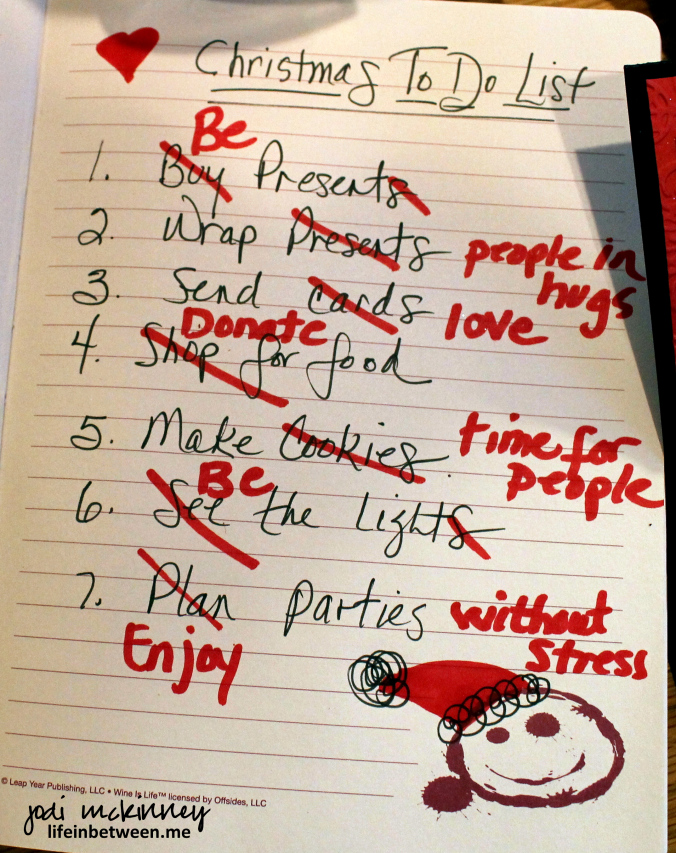 Christmas To Do List
Be
1. Buy Presents
2. Wrap Presents people in
hugs
3. Send cards love
Donate
4. Shop for food
5. Make Cookies time for
people
Be
6. See the Lights
7. Plan parties without
Enjoy stress
© Leap Year Publishing, LLC • Wine Is Life™ licensed by Offsides, LLC
jodi mckinney
lifeinbetween.me